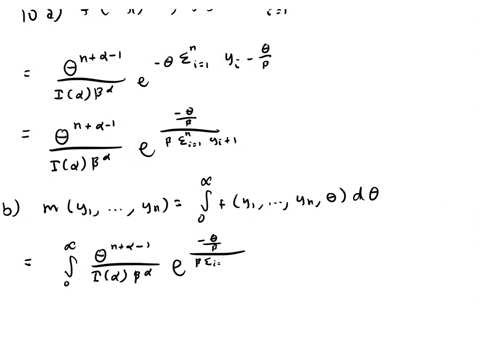 10 a)
= θ^{n+α-1} / Γ(α) β^α e^{-θ Σ_{i=1}^{n} y_i - θ/β}
= θ^{n+α-1} / Γ(α) β^α e^{(-θ/β) / (β Σ_{i=1}^{n} y_i + 1)}
b) m (y_1, ..., y_n) = ∫_0^∞ f (y_1, ..., y_n, θ) dθ
= ∫_0^∞ θ^{n+α-1} / Γ(α) β^α e^{(-θ/β) / (β Σ_{i=}